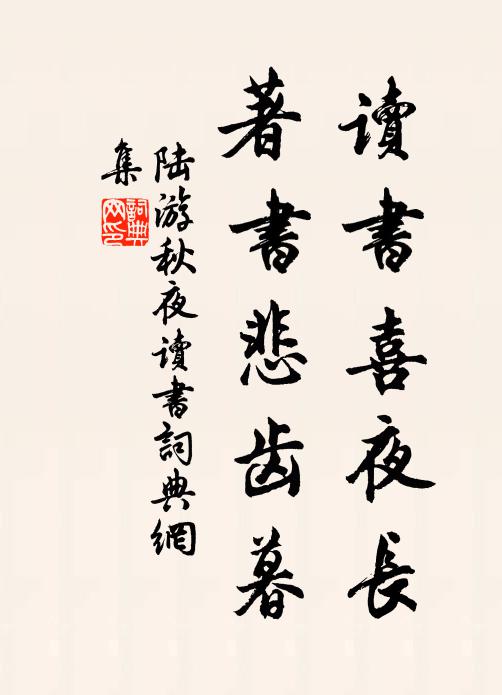 讀書喜夜長
著書悲齒暮
陆游秋夜讀書詞典網
集
詞典
网印